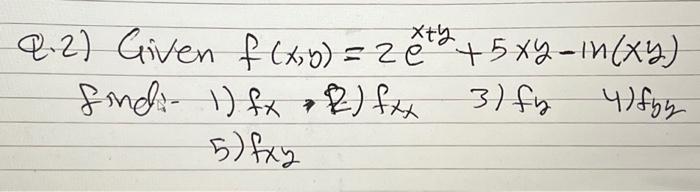 Q.2) Given f(x,y) = 2e^{x+y} + 5xy - ln(xy)
find:- 1) fx , 2) fxx 3) fy 4) fyy
5) fxy